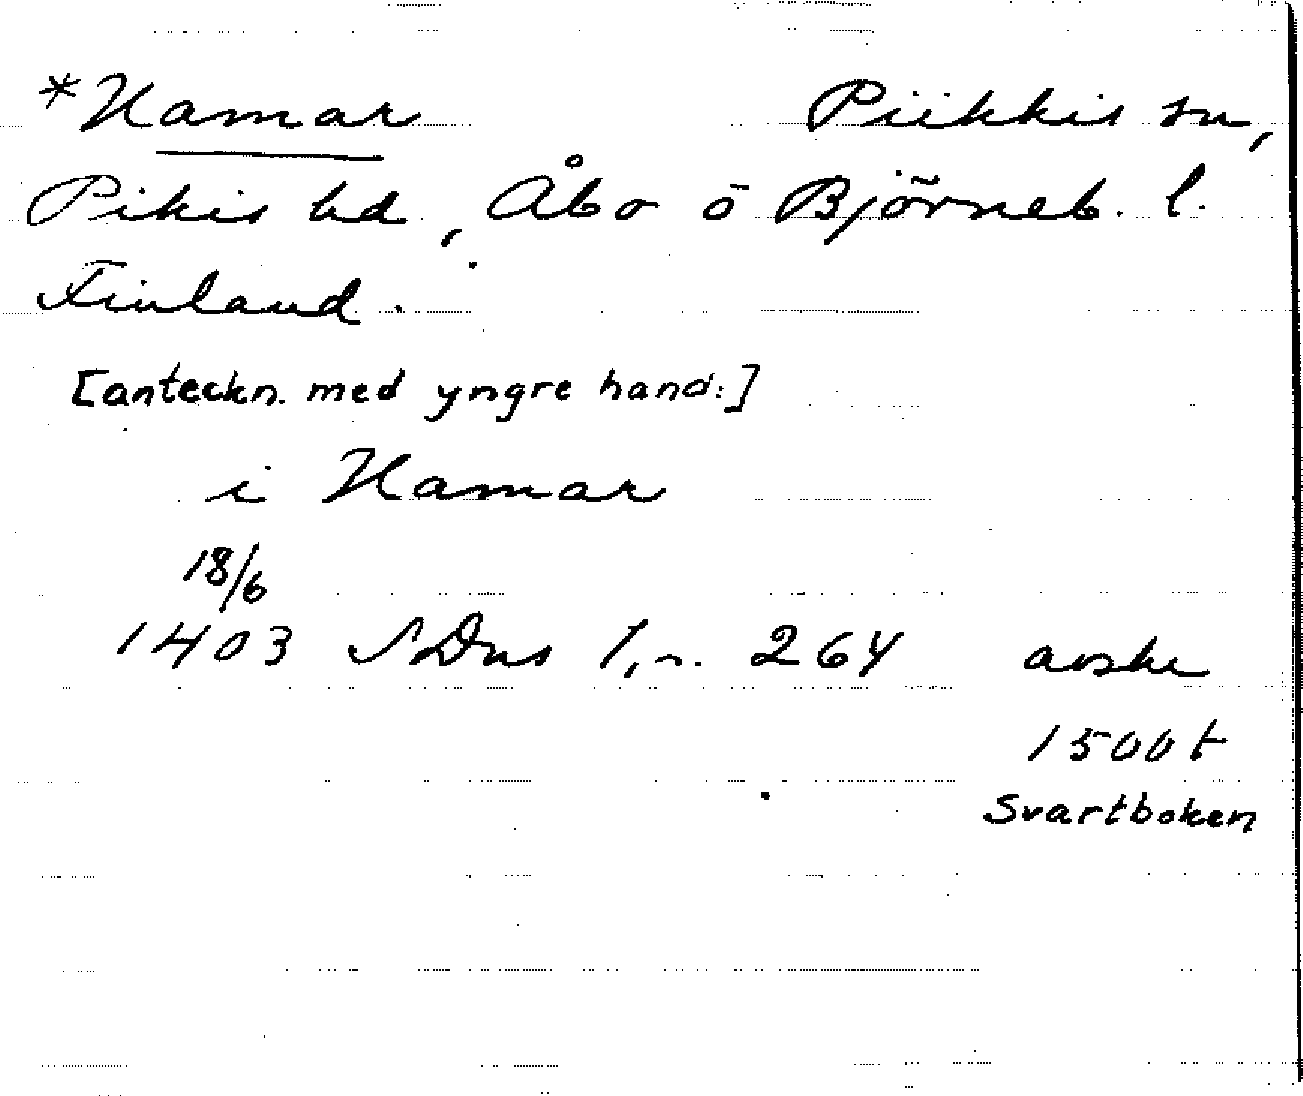 *Hamar Piikkis sn,
Pikis hd, Åbo ö Björneb. l.
Finland.
[anteckn. med yngre hand:]
i Hamar
18/6
1403 SDns 1, n. 264 avskr
1500t
Svartboken